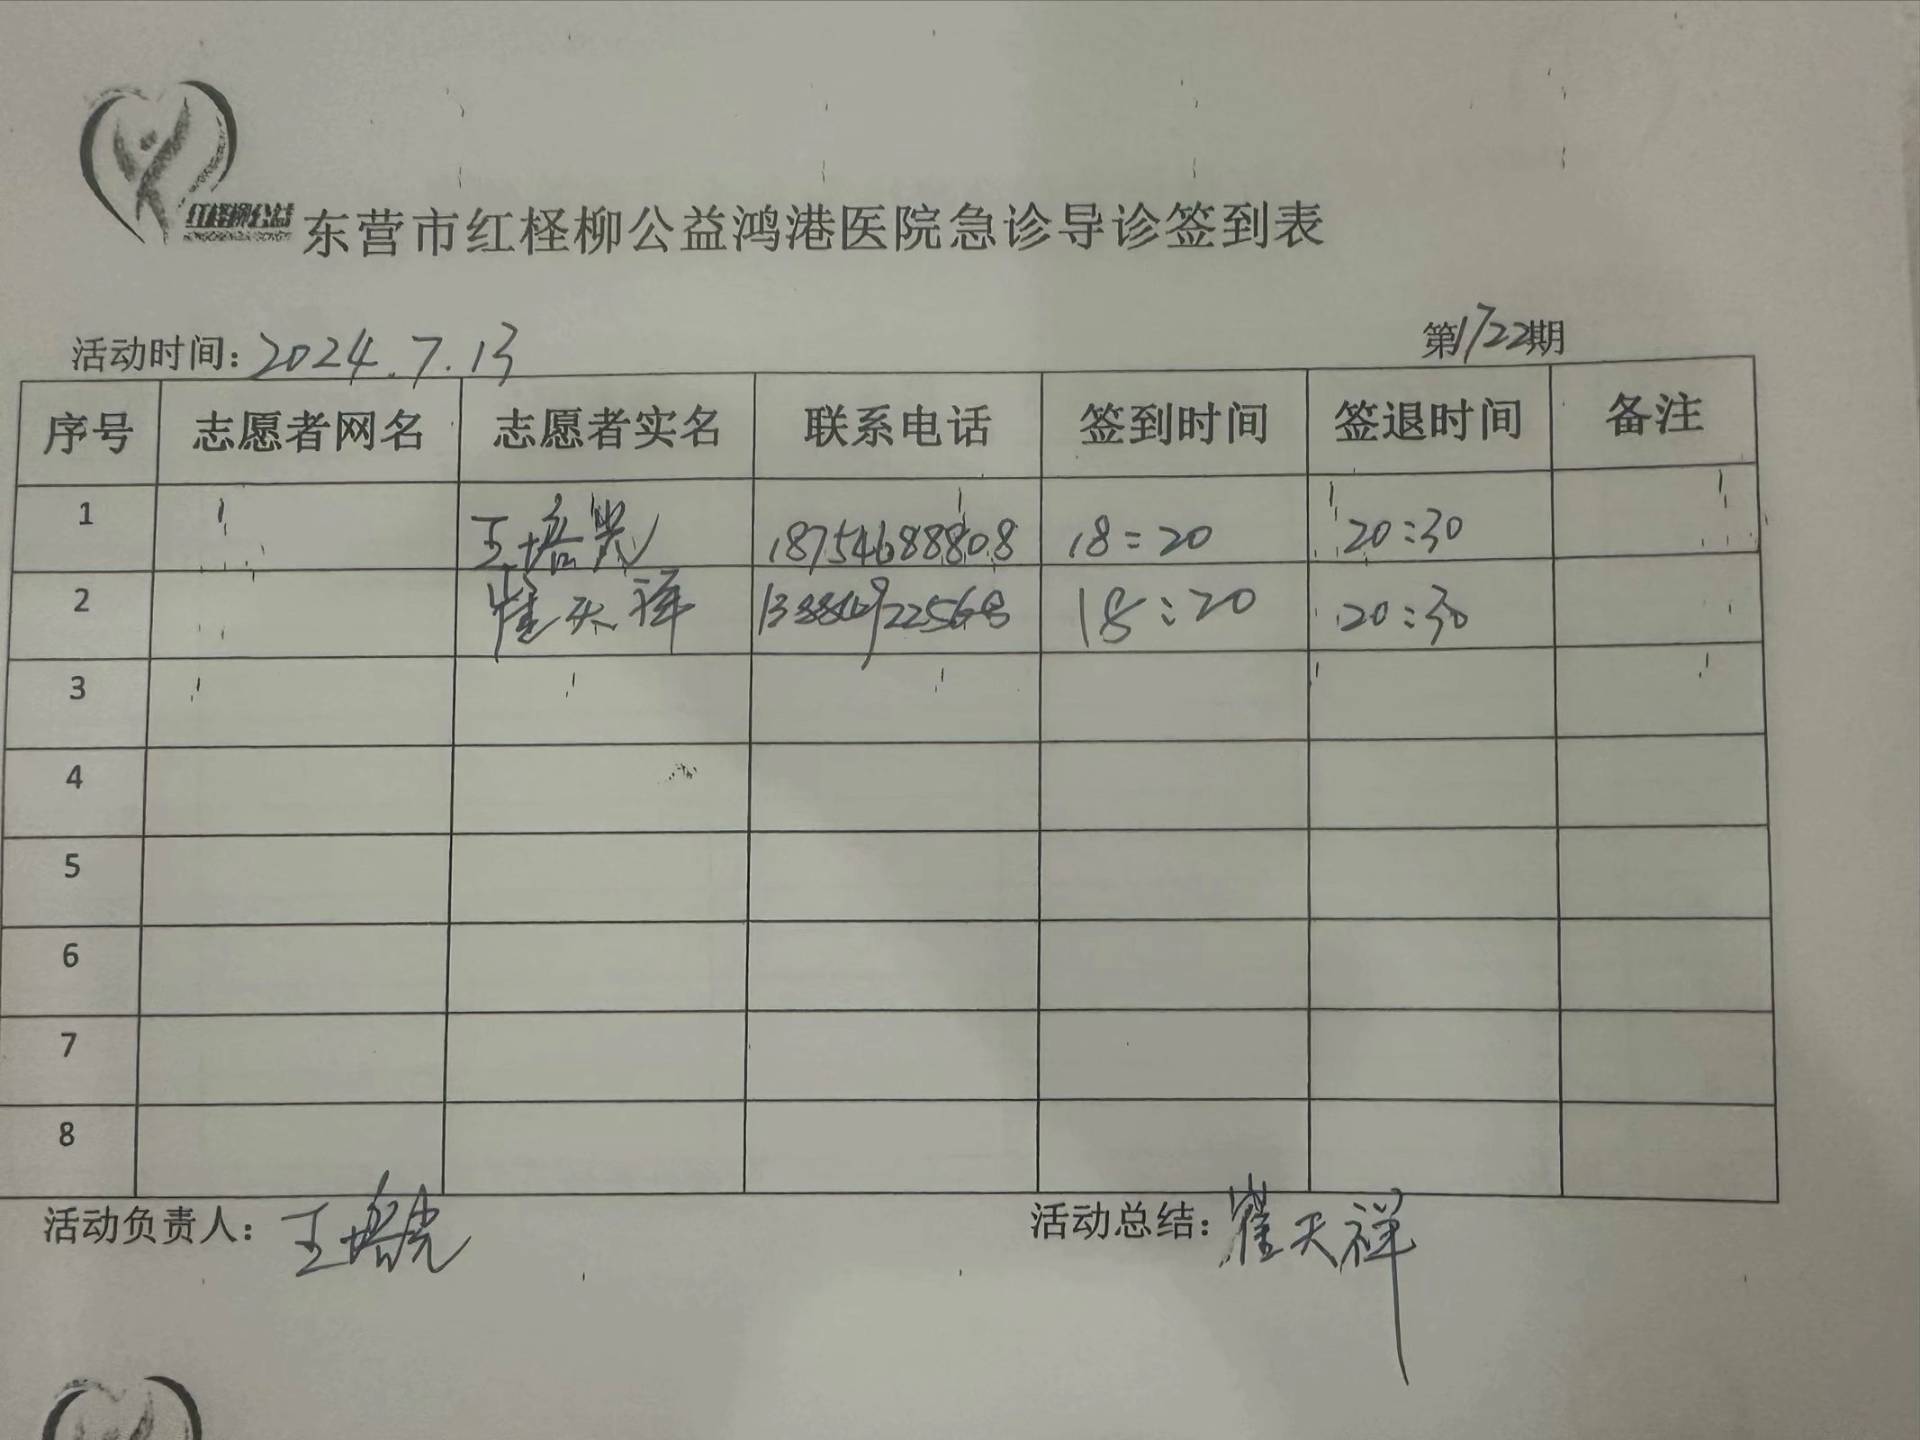 红柽柳公益
东营市红柽柳公益鸿港医院急诊导诊签到表
活动时间:2024.7.13 第1722期
序号 志愿者网名 志愿者实名 联系电话 签到时间 签退时间 备注
1 王培光 18754688808 18:20 20:30
2 崔天祥 18:20 20:30
3
4
5
6
7
8
活动负责人:王培光 活动总结:崔天祥